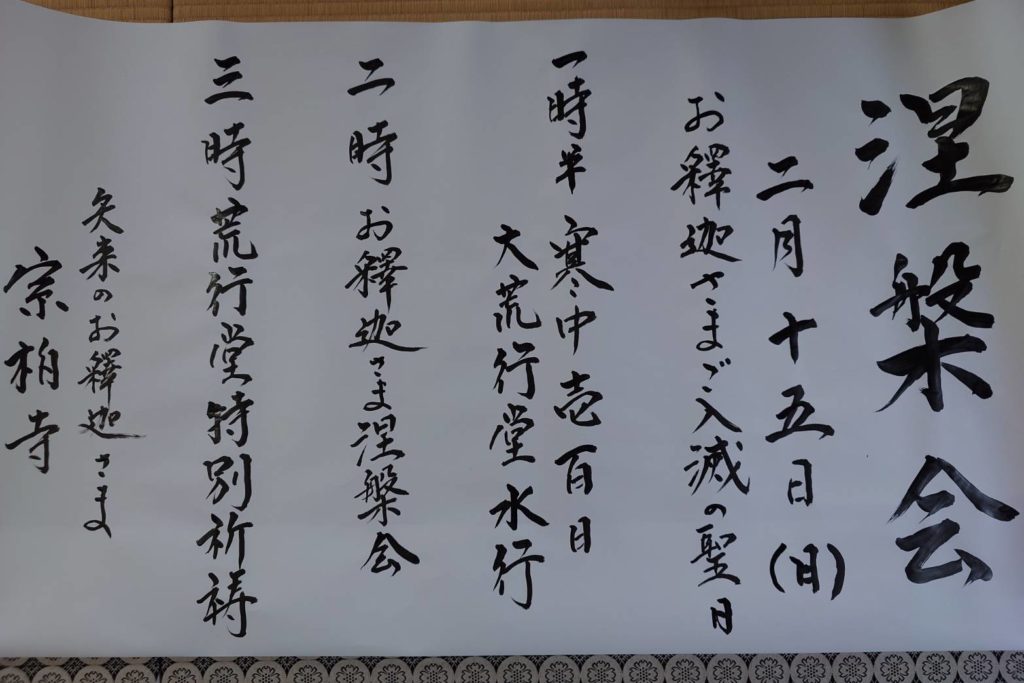 涅槃会
二月十五日(日)
お釋迦さまご入滅の聖日
一時半 寒中壱百日
大荒行堂水行
二時 お釋迦さま涅槃会
三時 荒行堂特別祈祷
矢来のお釋迦さま
宗柏寺